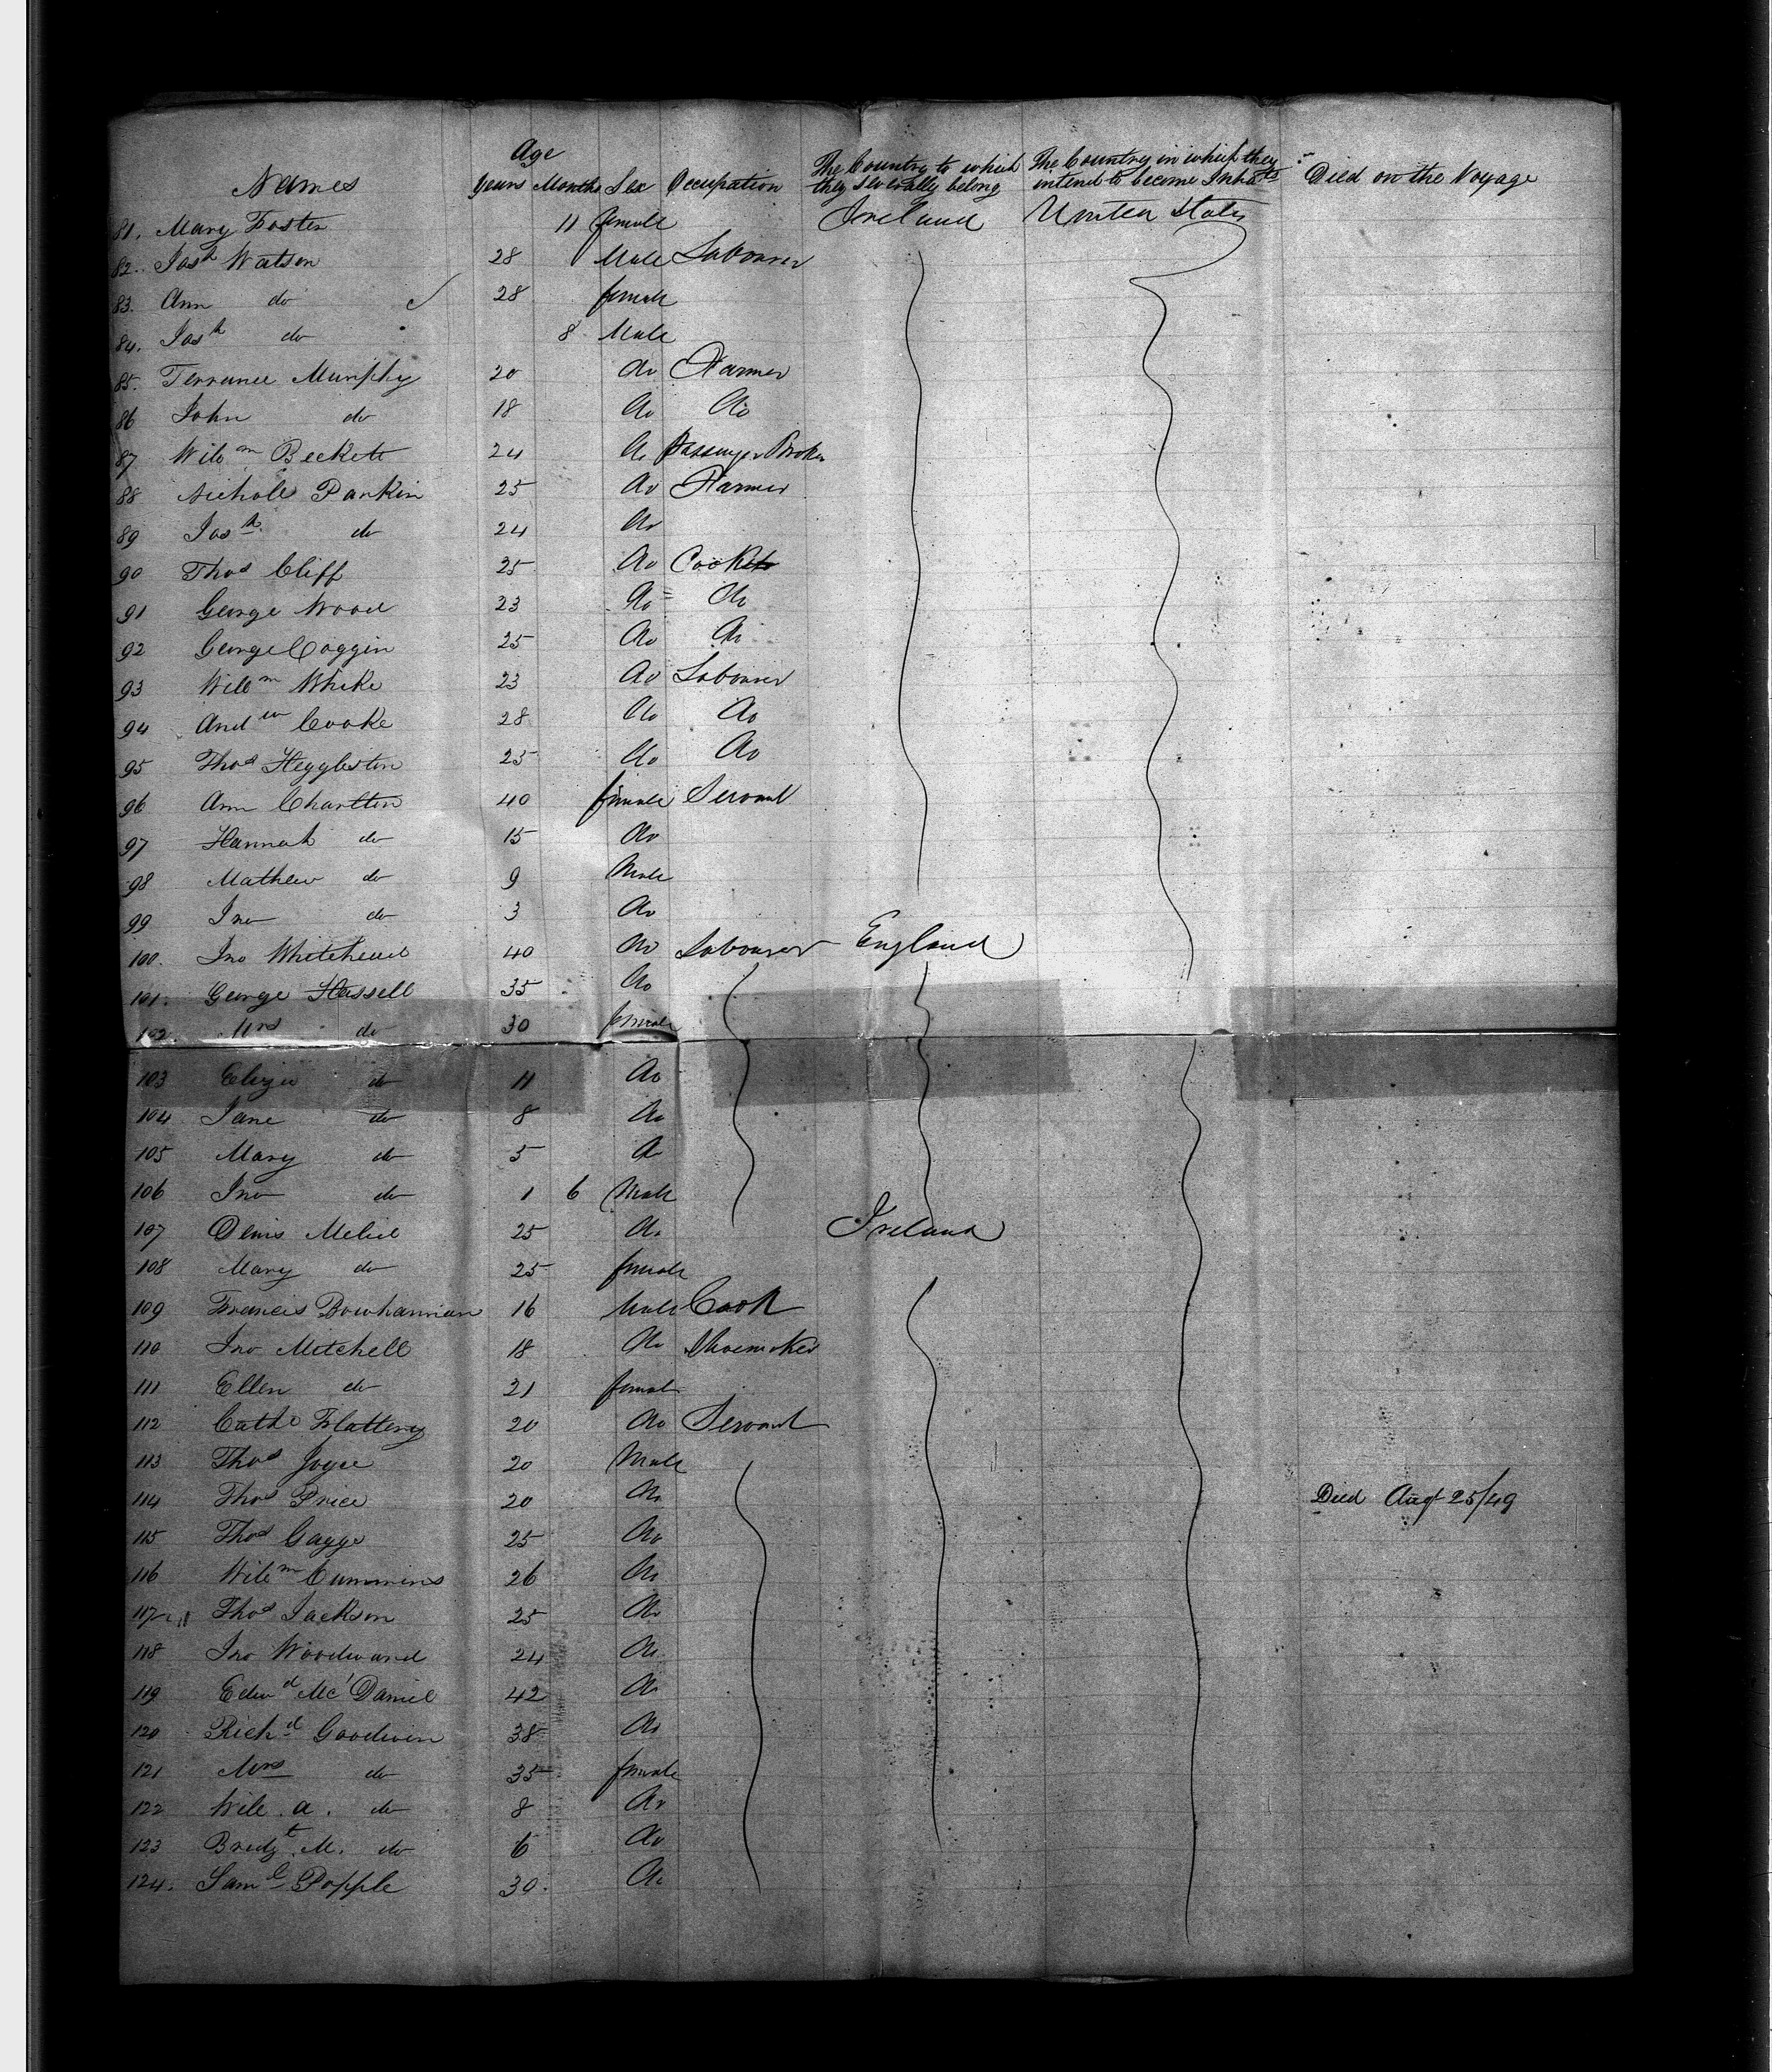 Age
Names Years Months Sex Occupation The Country to which they severally belong The Country in which they intend to become Inhabts Died on the Voyage
81. Mary Foster 11 female Ireland United States
82. Josh Watson 28 Male Labourer
83. Ann do 28 female
84. Josh do 8 Male
85. Terrance Murphy 20 do Farmer
86 John do 18 do do
87 Willm Beckett 24 do Passenger Broker
88 Nichols Parkin 25 do Farmer
89 Josh do 24 do
90 Thos Cliff 25 do Cook
91 George Wood 23 do do
92 George Coggin 25 do do
93 Willm White 23 do Labourer
94 Andw Cooke 28 do do
95 Thos Heggleston 25 do do
96 Ann Charlton 40 female Servant
97 Hannah do 15 do
98 Mathew do 9 Male
99 Jno do 3 do
100. Jno Whitehead 40 do Labourer England
101. George Hassell 35 do
102. Mrs do 30 female
103 Eliza do 11 do
104 Jane do 8 do
105 Mary do 5 do
106 Jno do 1 6 Male
107 Denis 25 do Ireland
108 Mary do 25 female
109 Francis Bowhannian 16 Male Cook
110 Jno Mitchell 18 do Shoemaker
111 Ellen do 21 female
112 Cathe Flattery 20 do Servant
113 Thos Joyce 20 Male
114 Thos Price 20 do Died Augt 25/49
115 Thos Gagge 25 do
116 Willm Cummins 26 do
117 Thos Jackson 25 do
118 Jno Woodward 24 do
119 Edwd Mc'Daniel 42 do
120 Richd Goodwin 38 do
121 Mrs do 35 female
122 Will. a. do 8 do
123 Bredgt M. do 6 do
124. Saml Popple 30. do